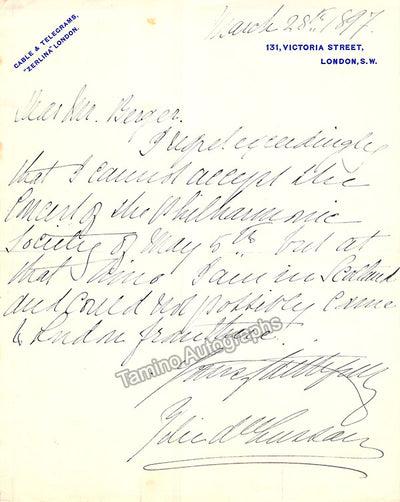 March 28th 1897.
CABLE & TELEGRAMS,
"ZERLINA" LONDON.
131, VICTORIA STREET,
LONDON, S.W.
Dear Mr. Berger.
I regret exceedingly
that I cannot accept the
Concert of the Philharmonic
Society of May 6th but at
that time I am in Scotland
and could not possibly come
to London from there.
Tamino Autographs
Yours faithfully
Zélie de Lussan